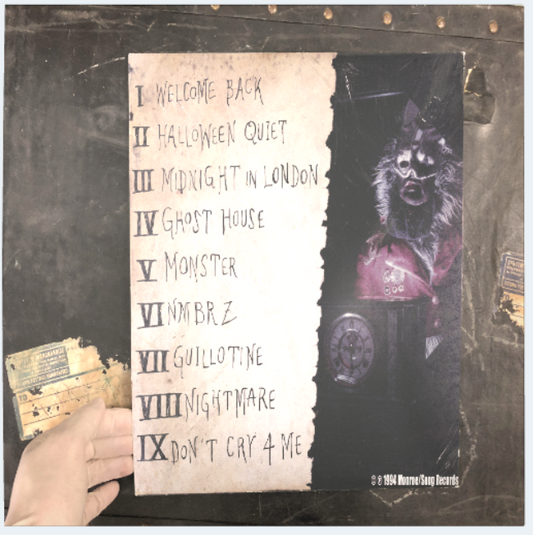 I WELCOME BACK
II HALLOWEEN QUIET
III MIDNIGHT IN LONDON
IV GHOST HOUSE
V MONSTER
VI NMBRZ
VII GUILLOTINE
VIII NIGHTMARE
IX DON'T CRY 4 ME
© ℗ 1994 Monroe/Song Records